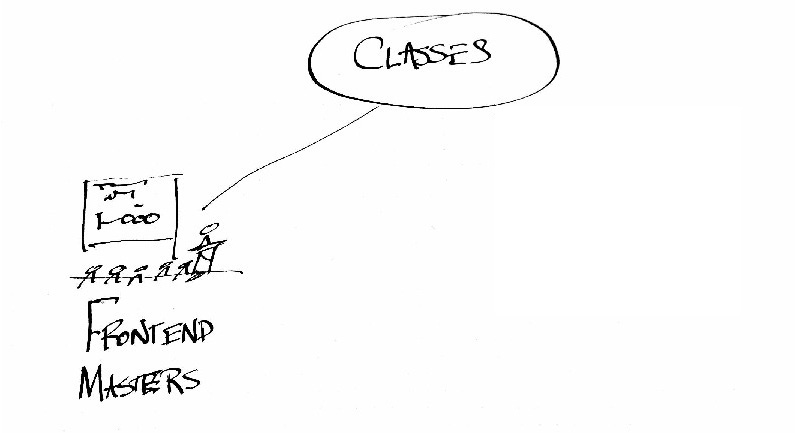 CLASSES
FRONTEND
MASTERS